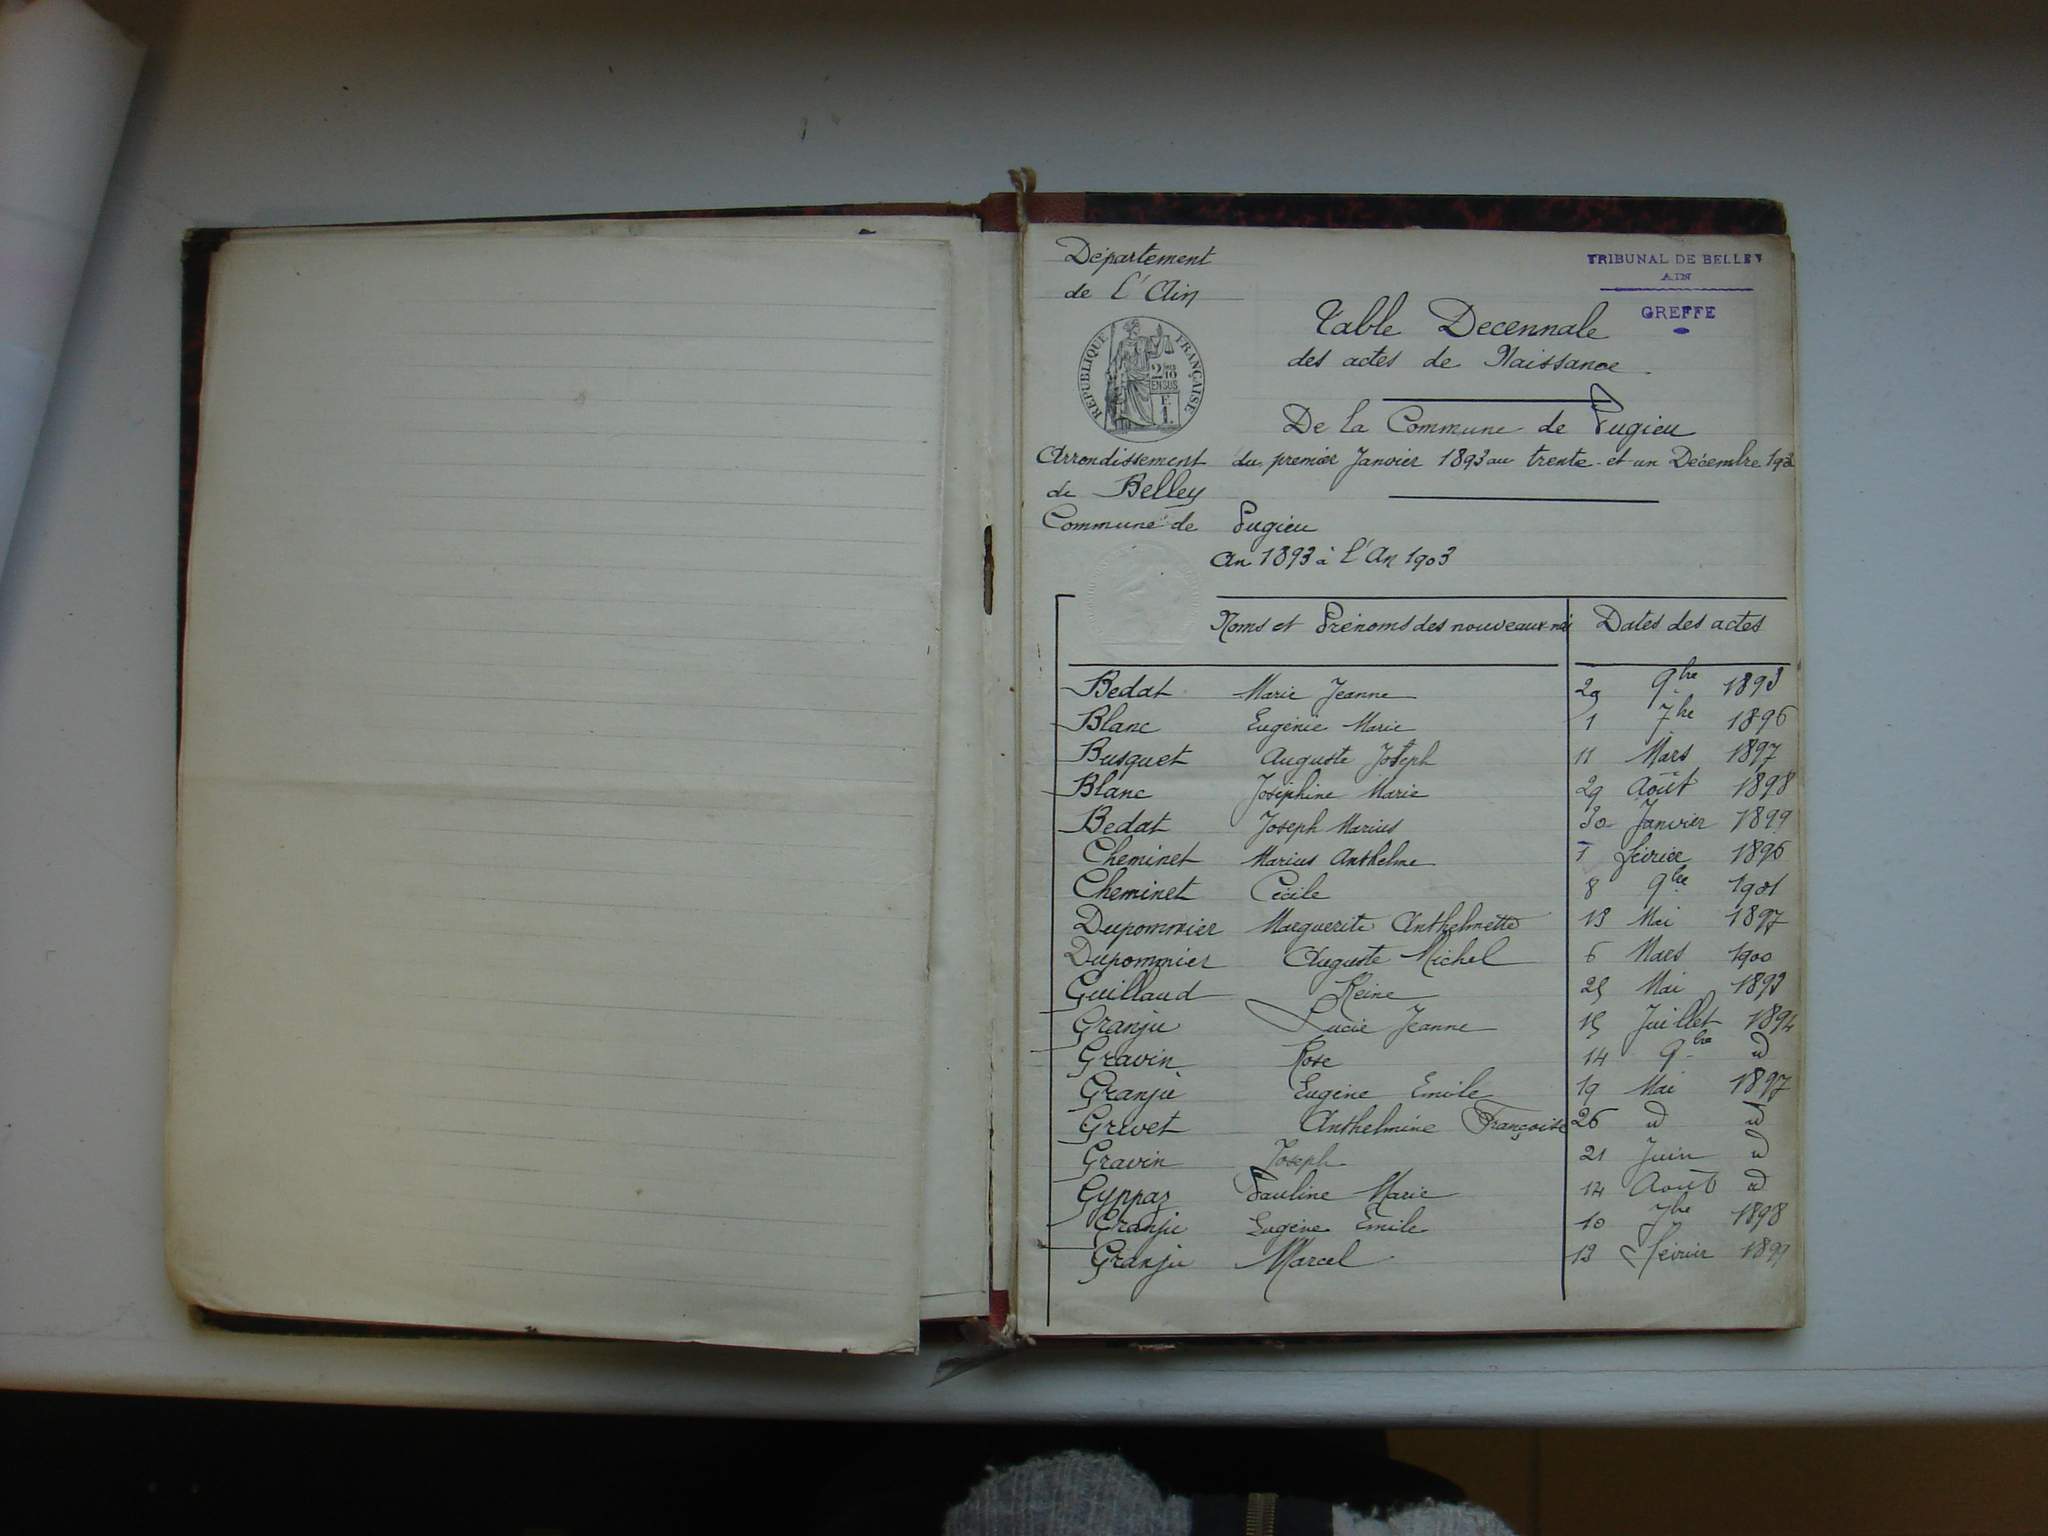 Département
de l'Ain
TRIBUNAL DE BELLEY
AIN
GREFFE
RÉPUBLIQUE FRANÇAISE
2/10
EN SUS
F.
1.
Table Decennale
des actes de Naissance
De la Commune de Pugieu
Arrondissement du premier Janvier 1893 au trente-et-un Décembre
de Belley
Commune de Pugieu
An 1893 à l'An 1903
Noms et Prénoms des nouveaux-nés Dates des actes
Bedat Marie Jeanne 29 9bre 1893
Blanc Eugénie Marie 1 7bre 1896
Busquet Auguste Joseph 11 Mars 1897
Blanc Joséphine Marie 29 Août 1898
Bedat Joseph Marius 30 Janvier 1899
Cheminet Marius Anthelme 1 février 1896
Cheminet Cécile 8 9bre 1901
Dupommier Marguerite Anthelmette 13 Mai 1897
Dupommier Auguste Michel 6 Mars 1900
Guillaud Reine 25 Mai 1893
Granju Lucie Jeanne 15 Juillet 1894
Gravin Rose 14 9bre d
Granju Eugène Emile 19 Mai 1897
Grivet Anthelmine Françoise 26 d d
Gravin Joseph 21 Juin d
Gyppaz Pauline Marie 14 Août d
Granju Eugène Emile 10 7bre 1898
Granju Marcel 13 février 1899